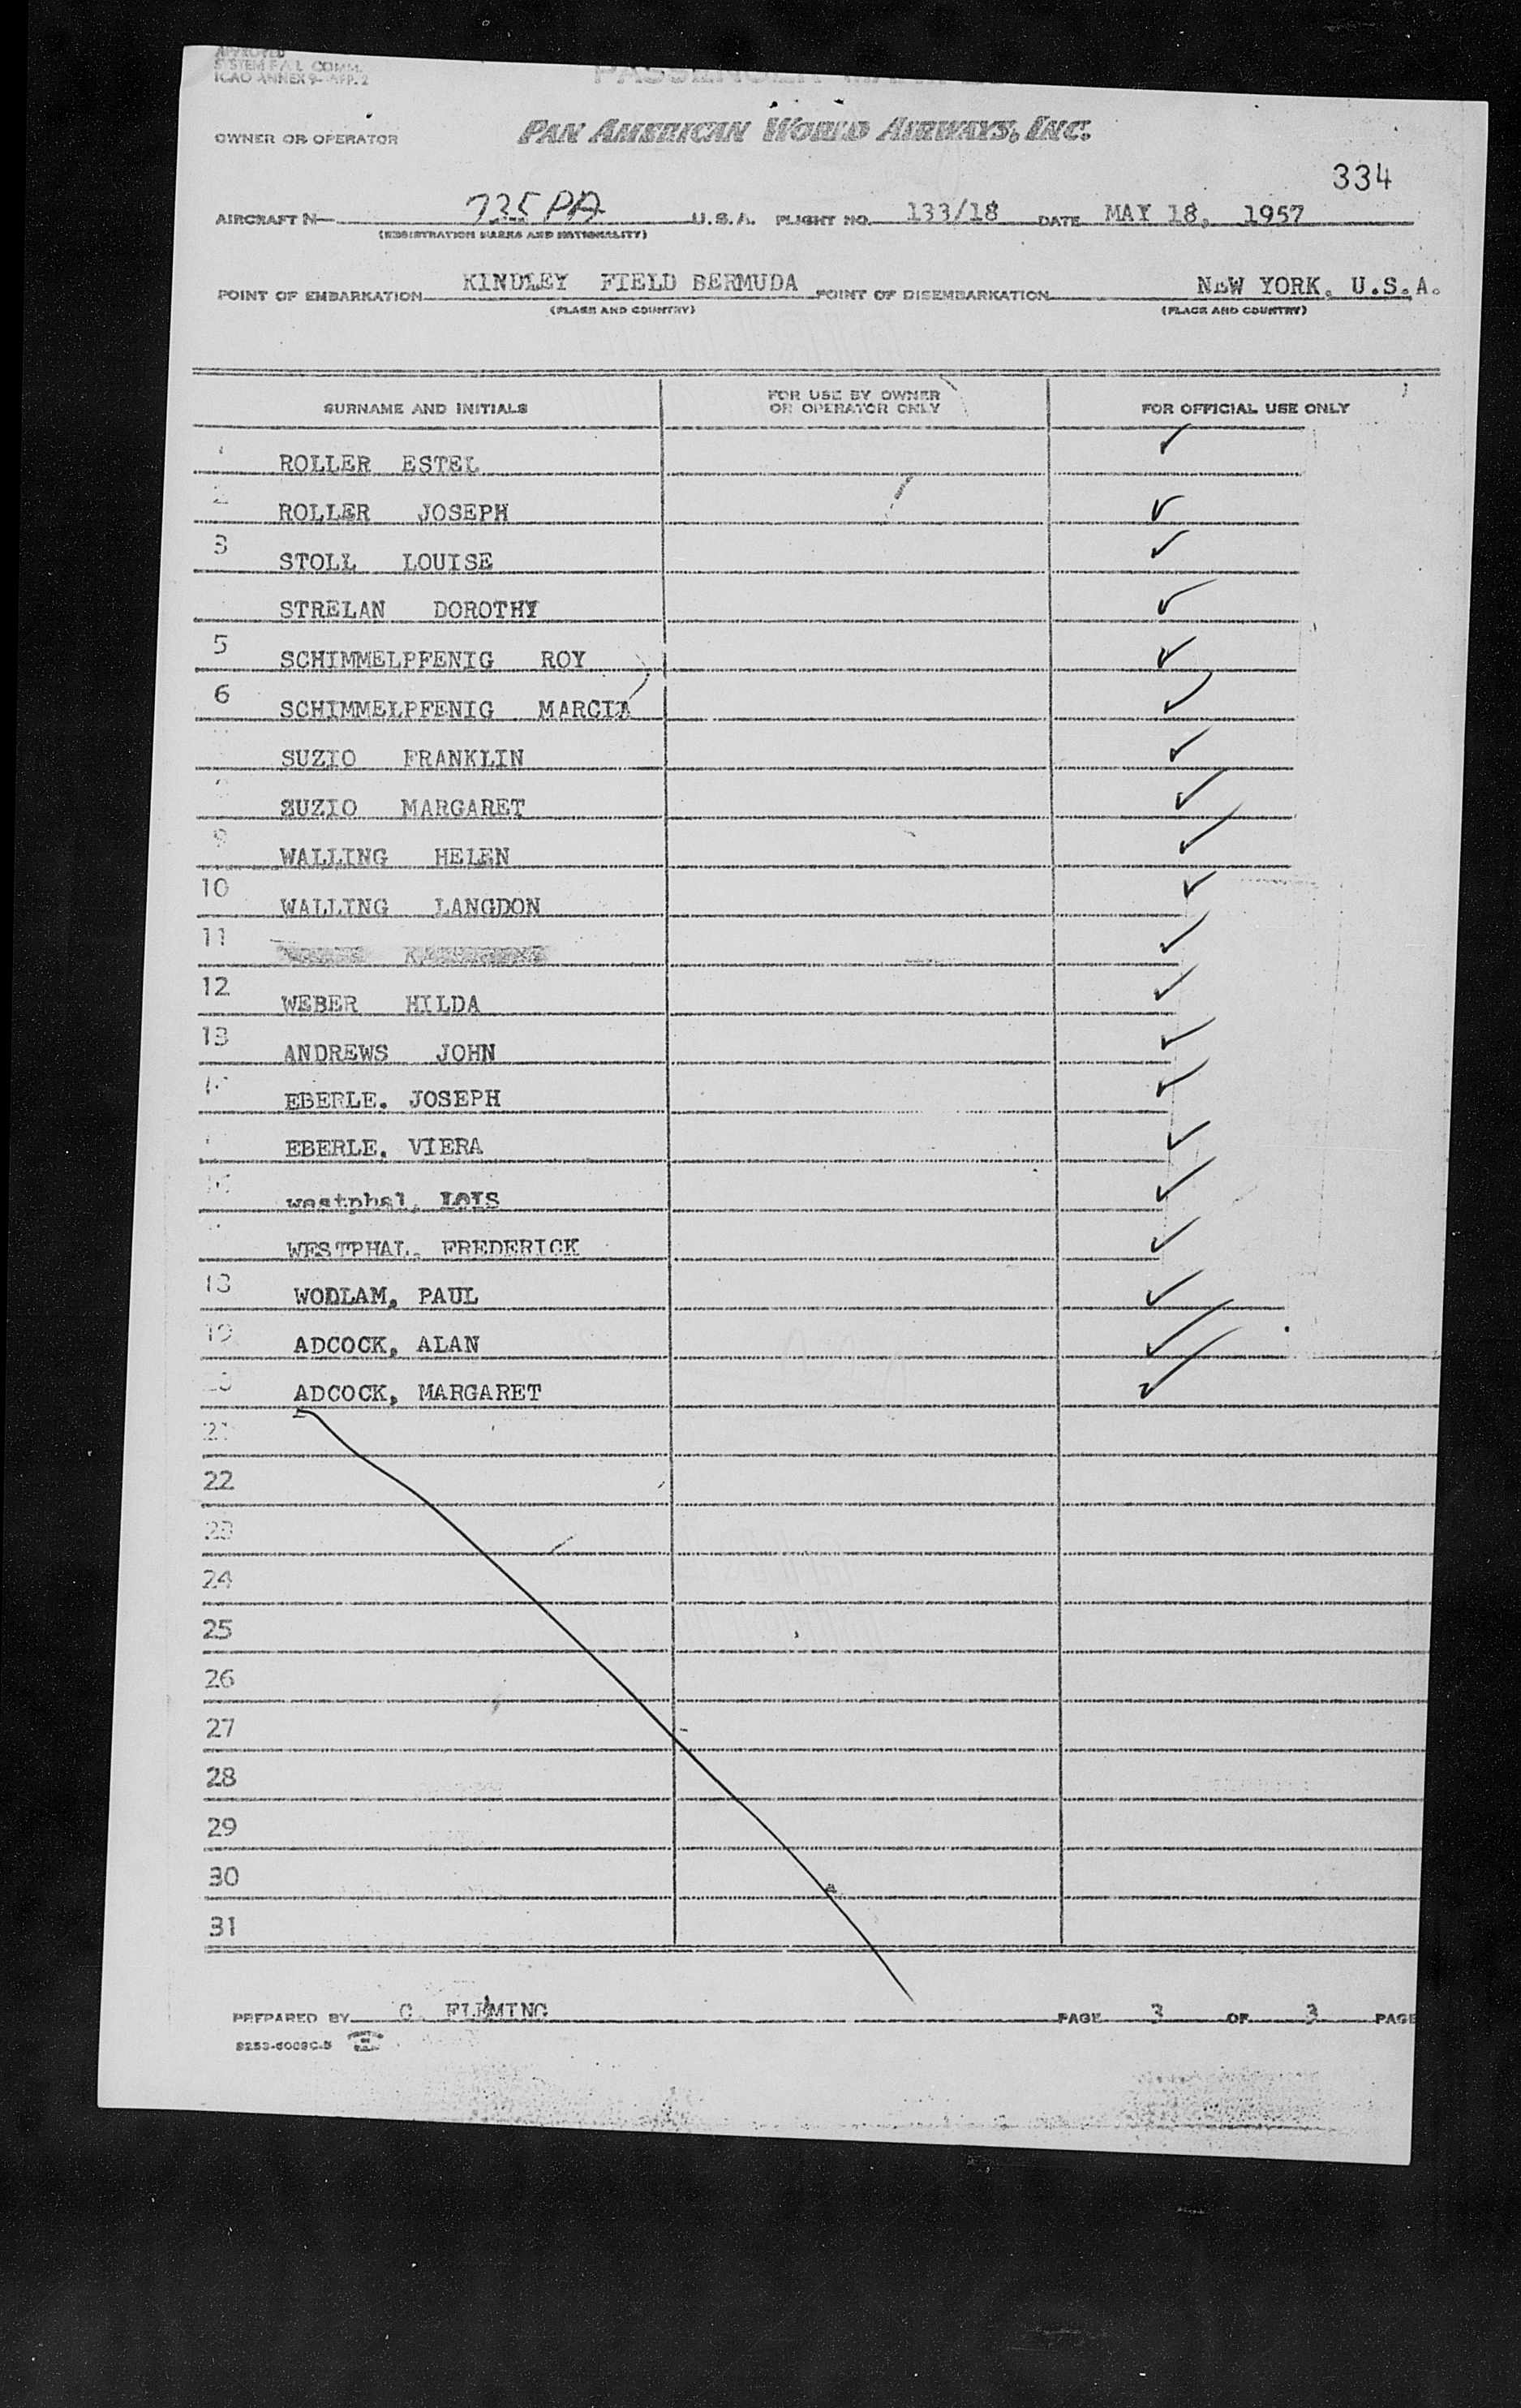 APPROVED
SYSTEM F.A.L. COMM.
ICAO ANNEX 9-APP. 2
PASSENGER
OWNER OR OPERATOR PAN AMERICAN WORLD AIRWAYS, INC.
334
AIRCRAFT N— 735PA U.S.A. FLIGHT NO. 133/18 DATE MAY 18, 1957
(REGISTRATION MARKS AND NATIONALITY)
POINT OF EMBARKATION KINDLEY FIELD BERMUDA POINT OF DISEMBARKATION NEW YORK, U.S.A.
(PLACE AND COUNTRY) (PLACE AND COUNTRY)
SURNAME AND INITIALS FOR USE BY OWNER OR OPERATOR ONLY FOR OFFICIAL USE ONLY
ROLLER ESTEL ✓
2 ROLLER JOSEPH ✓
3 STOLL LOUISE ✓
STRELAN DOROTHY ✓
5 SCHIMMELPFENIG ROY ✓
6 SCHIMMELPFENIG MARCIA ✓
SUZIO FRANKLIN ✓
SUZIO MARGARET ✓
9 WALLING HELEN ✓
10 WALLING LANGDON ✓
11 ✓
12 WEBER HILDA ✓
13 ANDREWS JOHN ✓
EBERLE. JOSEPH ✓
EBERLE. VIERA ✓
westphal, LOIS ✓
WESTPHAL, FREDERICK ✓
18 WODLAM, PAUL ✓
19 ADCOCK, ALAN ✓
ADCOCK, MARGARET ✓
21
22
23
24
25
26
27
28
29
30
31
PREPARED BY C. FLEMING PAGE 3 OF 3 PAGE